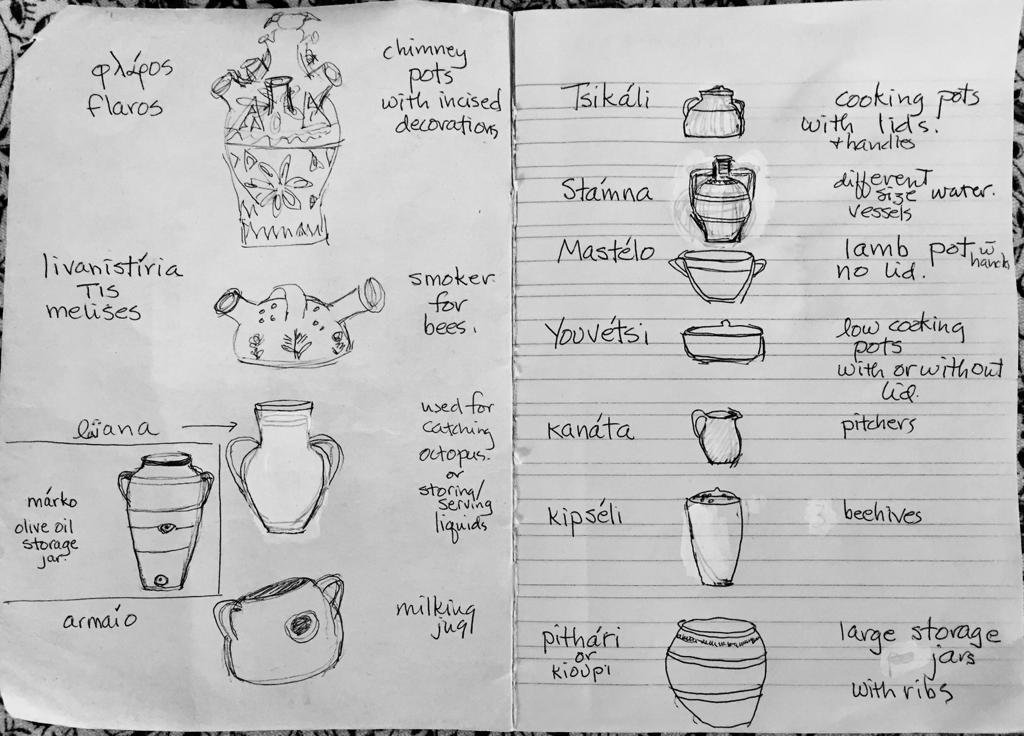 φλάρος
flaros
chimney
pots
with incised
decorations
livanistíria
Tis
melises
smoker
for
bees.
used for
catching
octopus.
or
storing/
serving
liquids
márko
olive oil
storage
jar.
armaío
milking
jug
Tsikáli
cooking pots
with lids.
+handles
Stámna
different
size water.
vessels
Mastélo
lamb pot w̄
no lid.
Youvétsi
low cooking
pots
with or without
lid.
Kanáta
pitchers
Kipséli
beehives
pithári
or
kioúpi
large storage
jars
with ribs